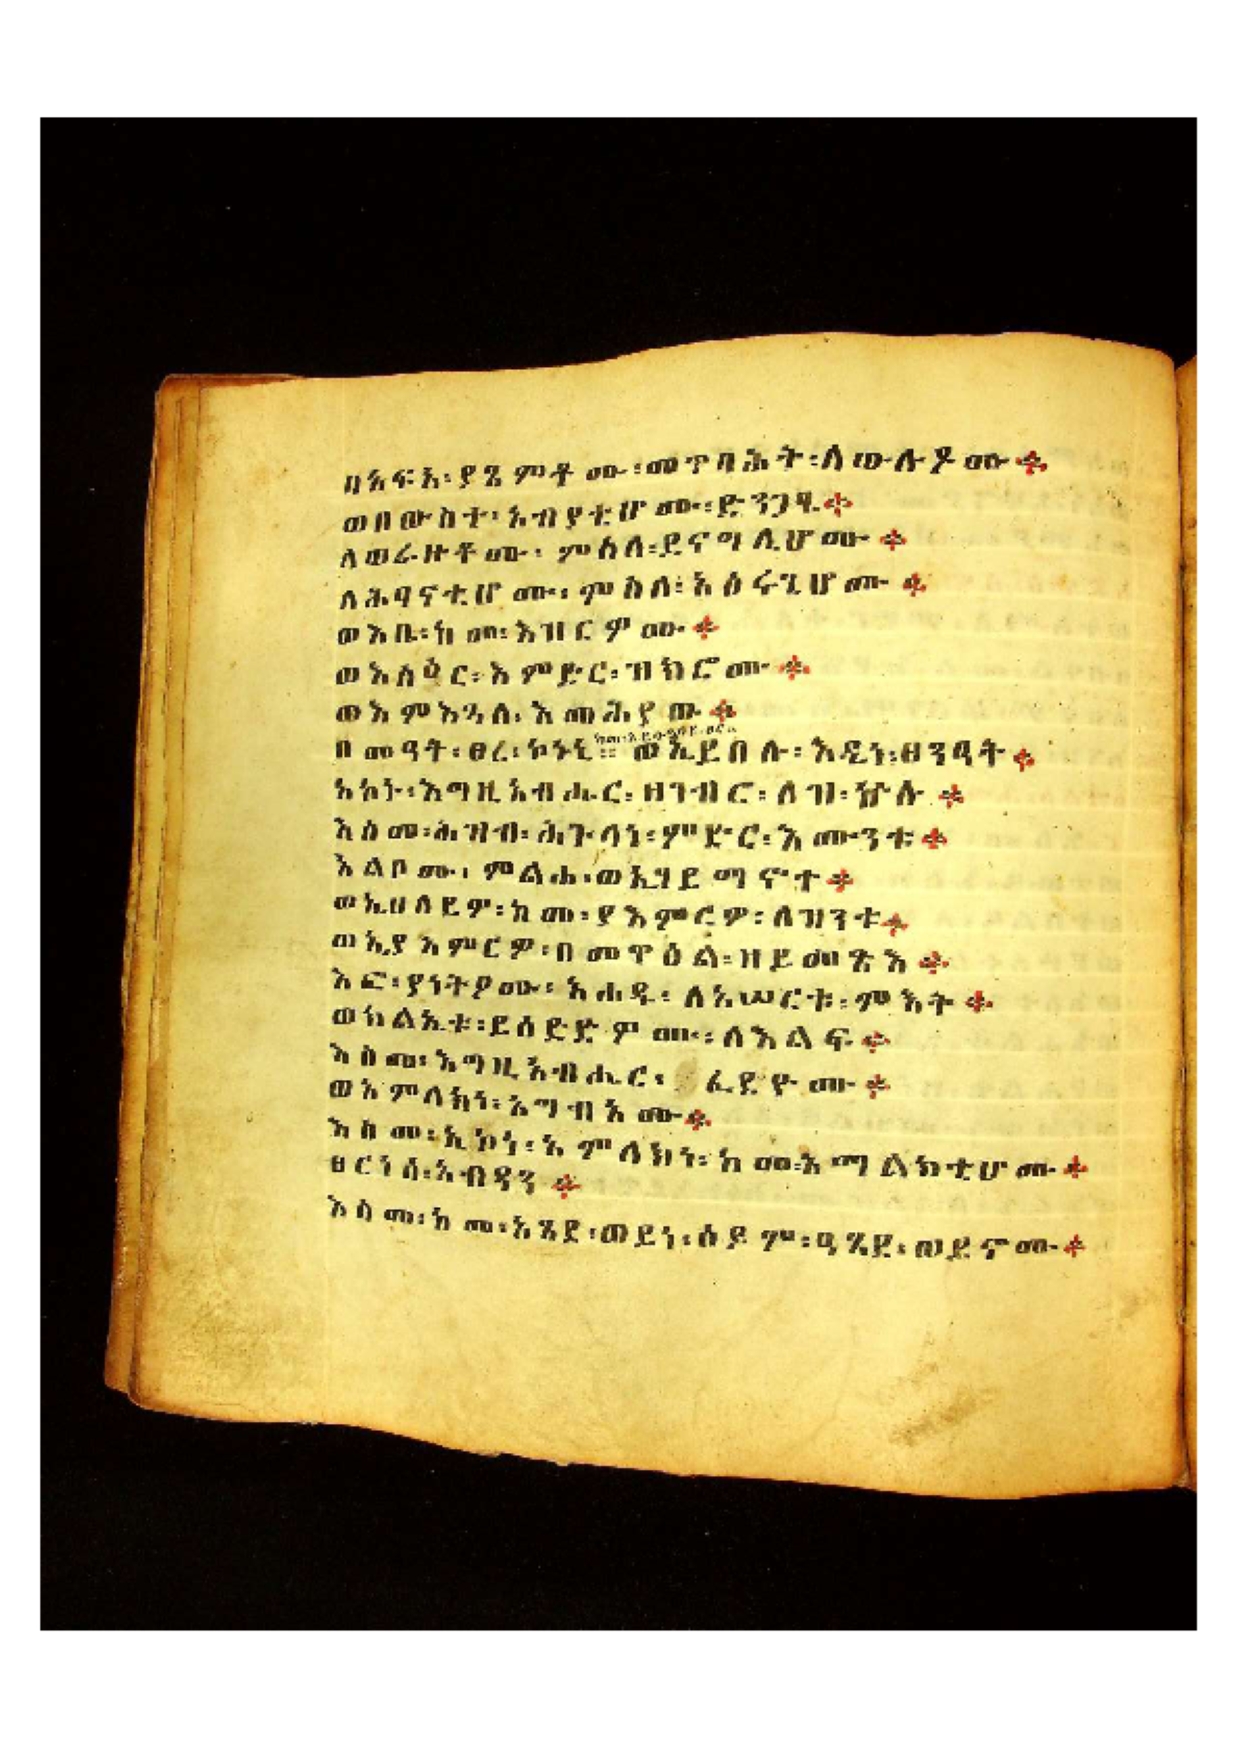 በአፍአ፡ያጼምቶሙ፡መጥባሕት፡ለውሉዶሙ።
ወበውስተ፡አብያቲሆሙ፡ድንጋፄ።
ለወራዙቶሙ፡ምስለ፡ደናግሊሆሙ።
ለሕፃናቲሆሙ፡ምስለ፡አዕሩጊሆሙ።
ወእቤ፡ከመ፡እዝርዎሙ።
ወእስዕር፡እምድር፡ዝክሮሙ።
ወእምእጓለ፡እመሕያው።
በመዓት፡ፀረ፡ኮነኒ። ወኢይበሉ፡እዴነ፡ፀንዓት።
አኮነ፡እግዚአብሔር፡ዘገብሮ፡ለዝ፡ኵሉ።
እስመ፡ሕዝብ፡ሕጉላነ፡ምክር፡እሙንቱ።
እልቦሙ፡ምልሐ፡ወኢሃይማኖተ።
ወኢሀለይዎ፡ከመ፡ያእምሮዎ፡ለዝንቱ።
ወኢያእምርዎ፡በመዋዕል፡ዘይመጽእ።
እፎ፡ያነትዖሙ፡አሐዱ፡ለአሠርቱ፡ምእት።
ወክልኤቱ፡ይሰድድዎሙ፡ለእልፍ።
እስመ፡እግዚአብሔር፡ ፈደዮሙ።
ወአምላክነ፡አግብአሙ።
እስመ፡ኢኮነ፡አምላክነ፡ከመ፡አማልክቲሆሙ።
ፀርነሰ፡አብዳን።
እስመ፡ከመ፡አጸደ፡ወይነ፡ሰዶም፡ዓጸደ፡ወይኖሙ።